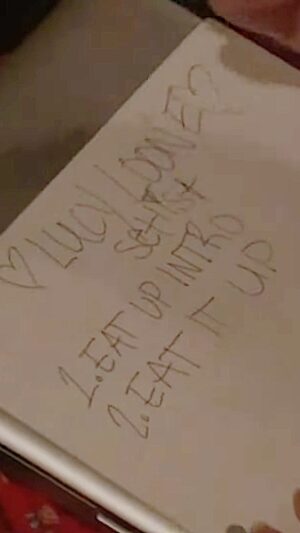 ♡ LUCY LOONE ♡
SetlIst
1. EAT UP INTRO
2. EAT IT UP